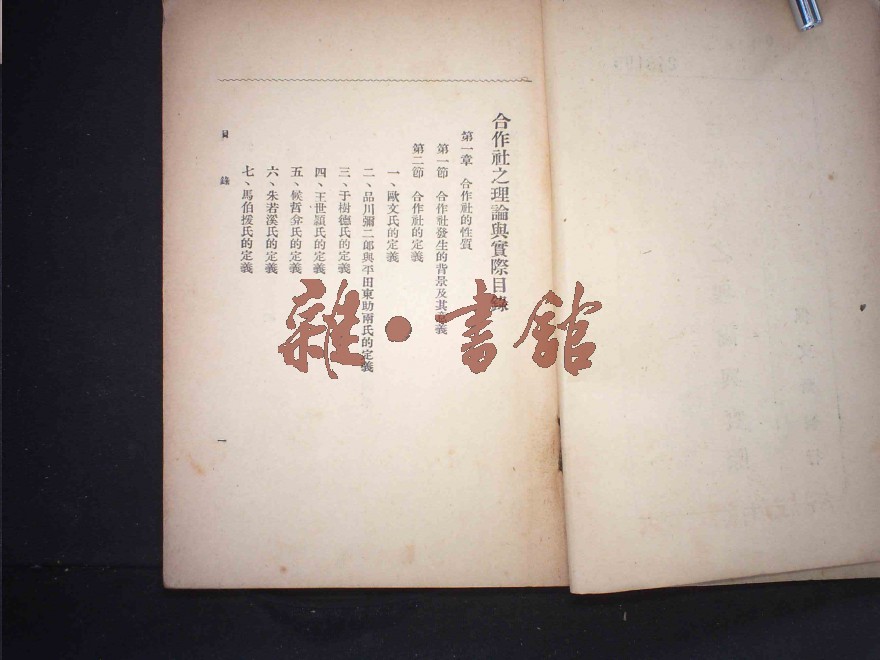 合作社之理論與實際目錄
第一章 合作社的性質
第一節 合作社發生的背景及其意義
第二節 合作社的定義
一、歐文氏的定義
二、品川彌二郎與平田東助兩氏的定義
三、于樹德氏的定義
四、王世穎氏的定義
五、侯哲葊氏的定義
六、朱若溪氏的定義
七、馬伯援氏的定義
目 錄
一
雜·書館